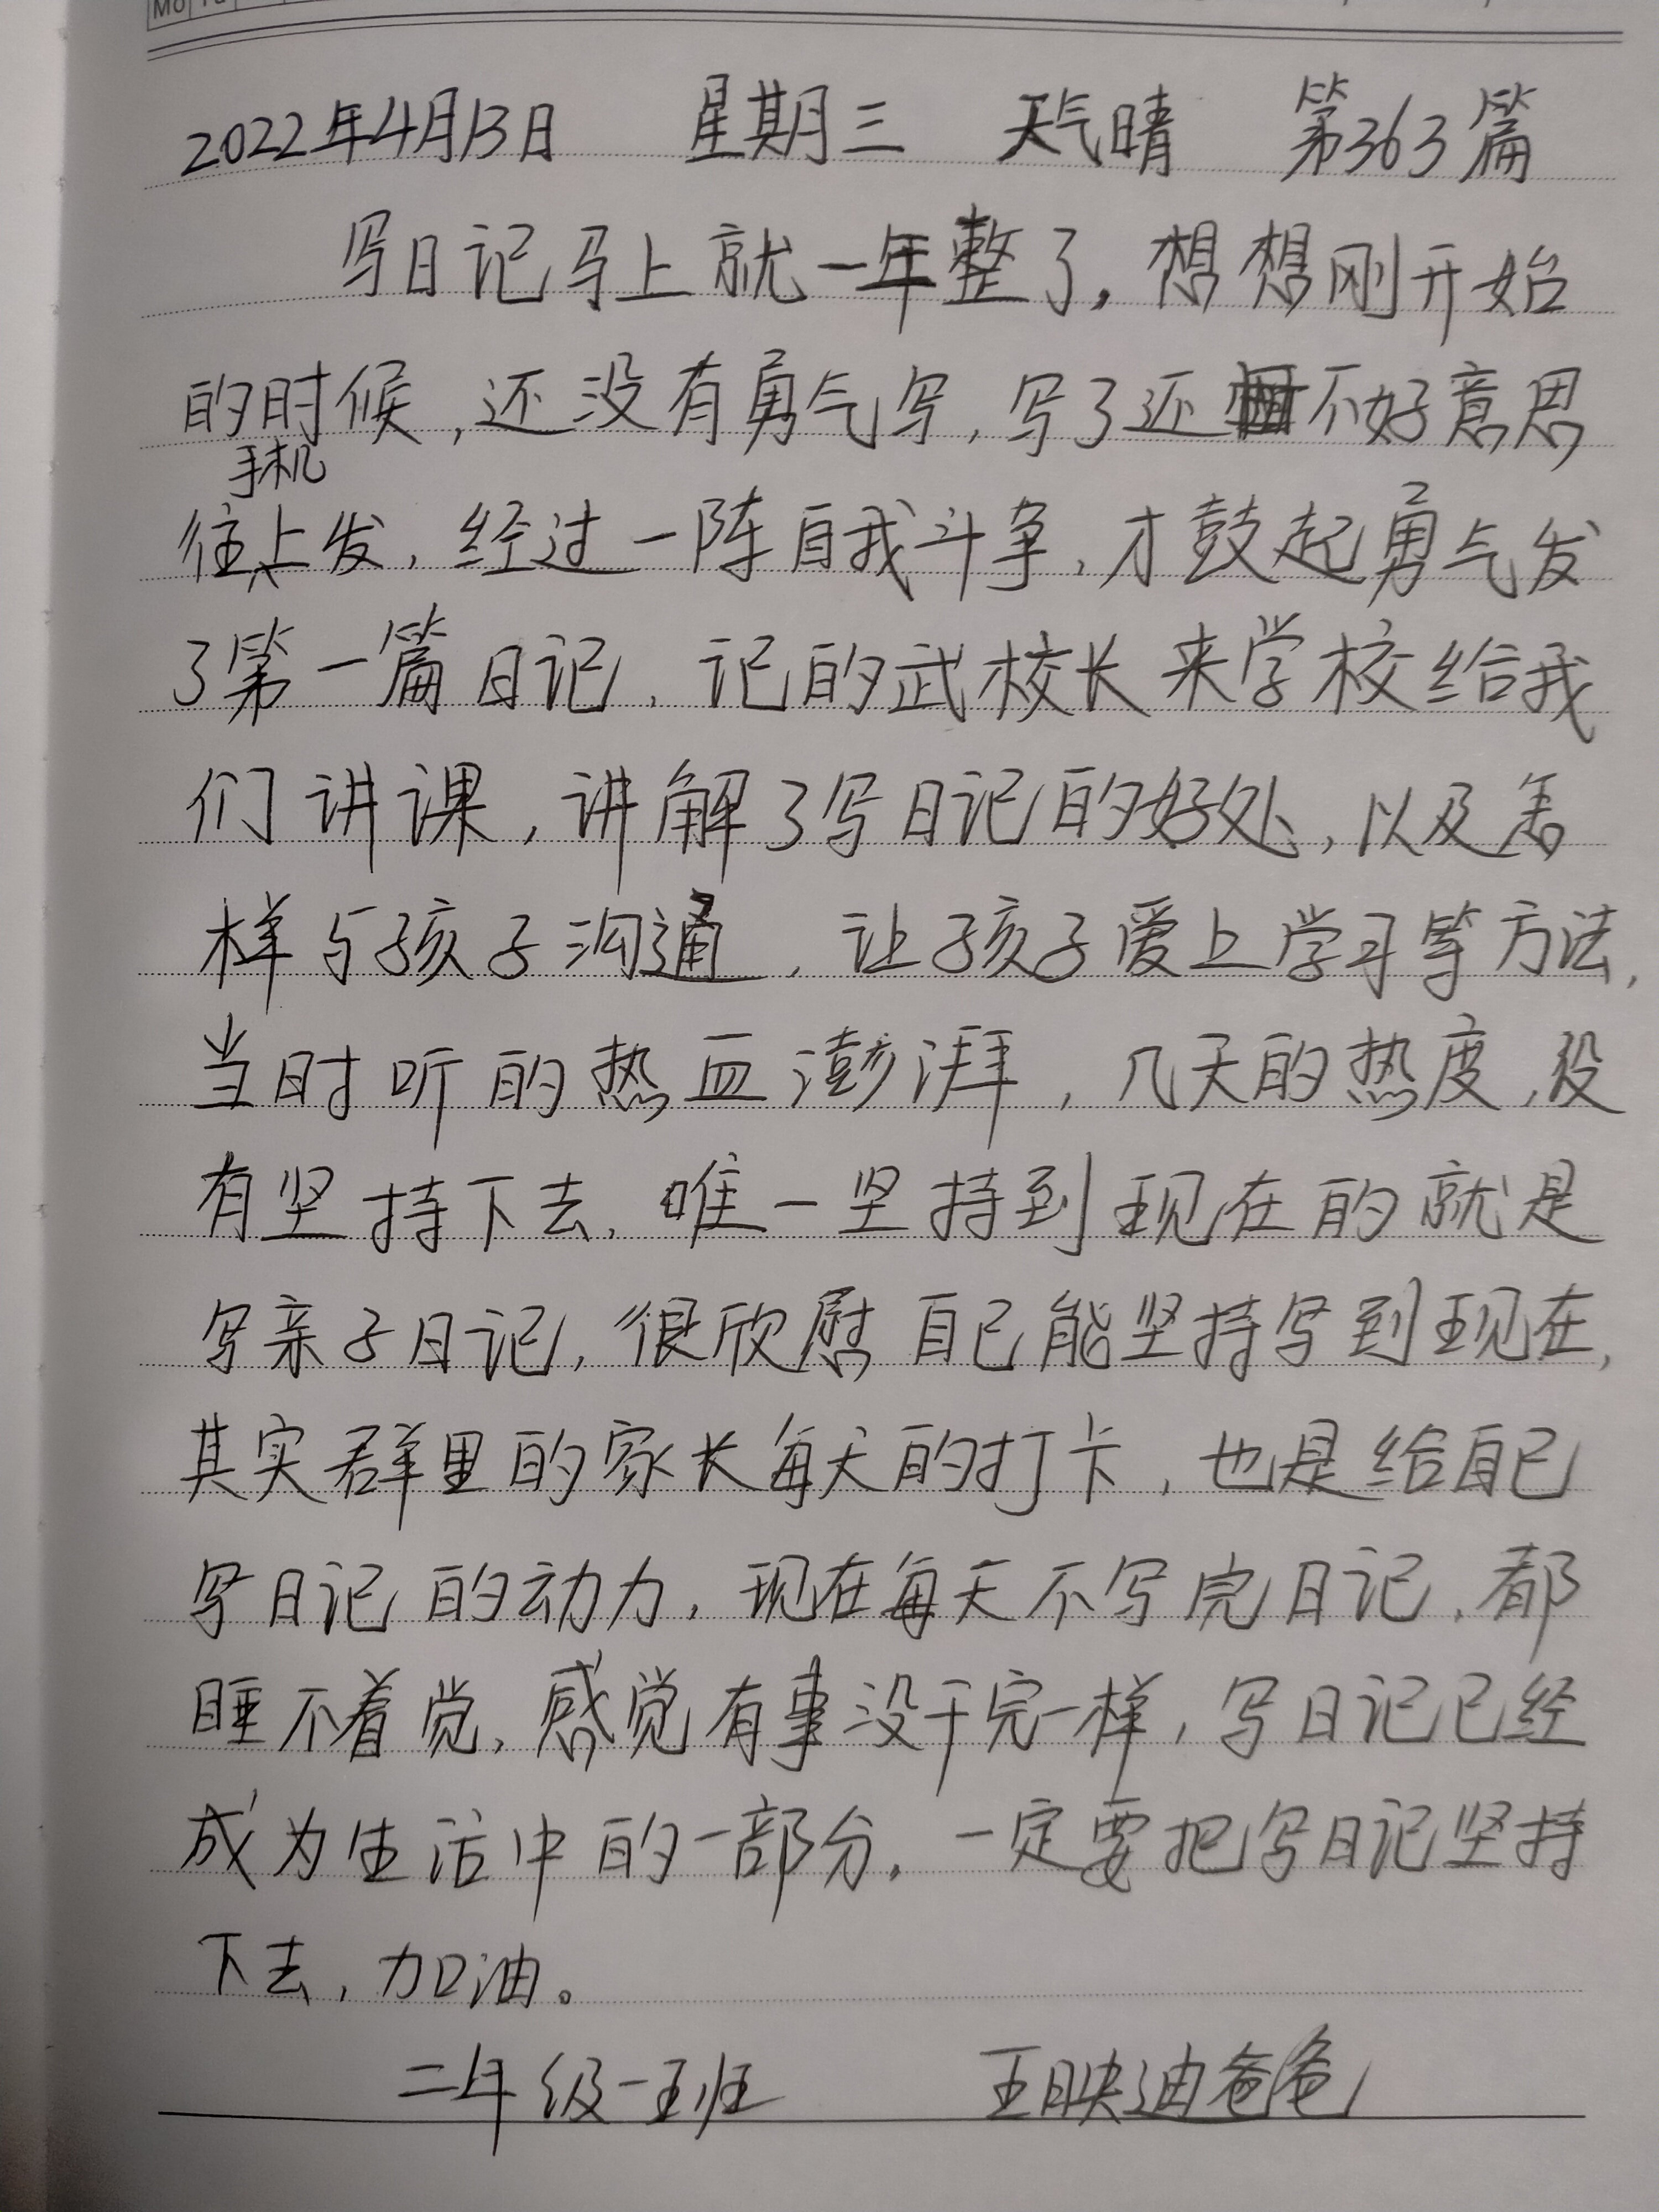 2022年4月13日 星期三 天气晴 第363篇
写日记马上就一年整了，想想刚开始
的时候，还没有勇气写，写了还不好意思
手机
往上发，经过一阵自我斗争，才鼓起勇气发
了第一篇日记，记的武校长来学校给我
们讲课，讲解了写日记的好处，以及怎
样与孩子沟通，让孩子爱上学习等方法，
当时听的热血澎湃，几天的热度，没
有坚持下去，唯一坚持到现在的就是
写亲子日记，很欣慰自己能坚持写到现在，
其实群里的家长每天的打卡，也是给自己
写日记的动力，现在每天不写完日记，都
睡不着觉，感觉有事没干完一样，写日记已经
成为生活中的一部分，一定要把写日记坚持
下去，加油。
二年级一班 王映迪爸爸